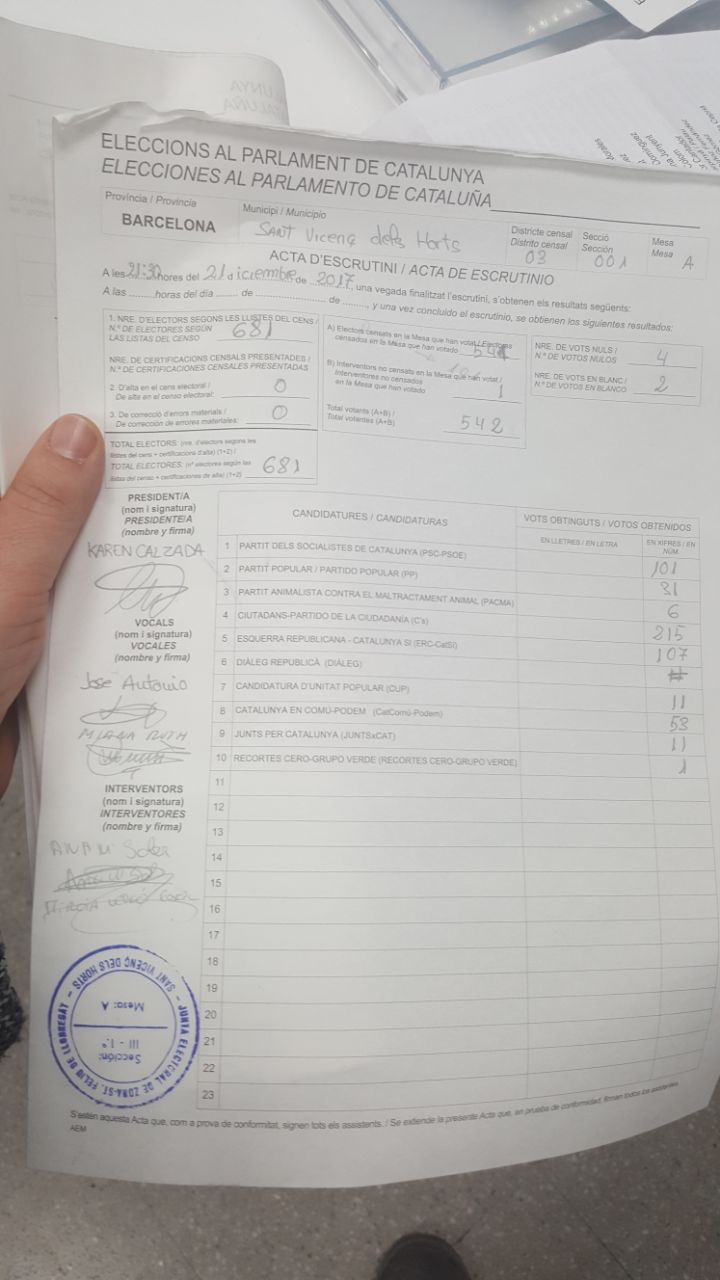 ELECCIONS AL PARLAMENT DE CATALUNYA
ELECCIONES AL PARLAMENTO DE CATALUÑA
Província / Provincia
BARCELONA
Municipi / Municipio
SANT Vicenç dels Horts
Districte censal
Distrito censal
03
Secció
Sección
001
Mesa
Mesa A
ACTA D'ESCRUTINI / ACTA DE ESCRUTINIO
A les 21:30 hores del 21 diciembre de 2017, una vegada finalitzat l'escrutini, s'obtenen els resultats següents:
A las ........ horas del día ........ de ........................ de ........, y una vez concluido el escrutinio, se obtienen los siguientes resultados:
1. NRE. D'ELECTORS SEGONS LES LLISTES DEL CENS /
N.º DE ELECTORES SEGÚN
LAS LISTAS DEL CENSO 681
NRE. DE CERTIFICACIONS CENSALS PRESENTADES /
N.º DE CERTIFICACIONES CENSALES PRESENTADAS
2. D'alta en el cens electoral /
De alta en el censo electoral: 0
3. De correcció d'errors materials /
De corrección de errores materiales: 0
TOTAL ELECTORS: (nre. d'electors segons les
llistes del cens + certificacions d'alta) (1+2) /
TOTAL ELECTORES: (nº electores según las
listas del censo + certificaciones de alta) (1+2) 681
A) Electors censats en la Mesa que han votat / Electores
censados en la Mesa que han votado 541
B) Interventors no censats en la Mesa que han votat /
Interventores no censados
en la Mesa que han votado 1
Total votants (A+B) /
Total votantes (A+B) 542
NRE. DE VOTS NULS /
N.º DE VOTOS NULOS 4
NRE. DE VOTS EN BLANC /
N.º DE VOTOS EN BLANCO 2
PRESIDENT/A
(nom i signatura)
PRESIDENTE/A
(nombre y firma)
KAREN CALZADA
VOCALS
(nom i signatura)
VOCALES
(nombre y firma)
José Antonio
INTERVENTORS
(nom i signatura)
INTERVENTORES
(nombre y firma)
CANDIDATURES / CANDIDATURAS
VOTS OBTINGUTS / VOTOS OBTENIDOS
EN LLETRES / EN LETRA
EN XIFRES / EN NÚM.
1 PARTIT DELS SOCIALISTES DE CATALUNYA (PSC-PSOE) 101
2 PARTIT POPULAR / PARTIDO POPULAR (PP) 31
3 PARTIT ANIMALISTA CONTRA EL MALTRACTAMENT ANIMAL (PACMA) 6
4 CIUTADANS-PARTIDO DE LA CIUDADANÍA (C's) 215
5 ESQUERRA REPUBLICANA - CATALUNYA SÍ (ERC-CatSí) 107
6 DIÀLEG REPUBLICÀ (DIÀLEG)
7 CANDIDATURA D'UNITAT POPULAR (CUP) 11
8 CATALUNYA EN COMÚ-PODEM (CatComú-Podem) 53
9 JUNTS PER CATALUNYA (JUNTSxCAT) 11
10 RECORTES CERO-GRUPO VERDE (RECORTES CERO-GRUPO VERDE) 1
11
12
13
14
15
16
17
18
19
20
21
22
23
JUNTA ELECTORAL DE ZONA-ST. FELIU DE LLOBREGAT - SANT VICENÇ DELS HORTS -
Sección:
III - 1.ª
Mesa: A
S'estén aquesta Acta que, com a prova de conformitat, signen tots els assistents. / Se extiende la presente Acta que, en prueba de conformidad, firman todos los asistentes.
AEM